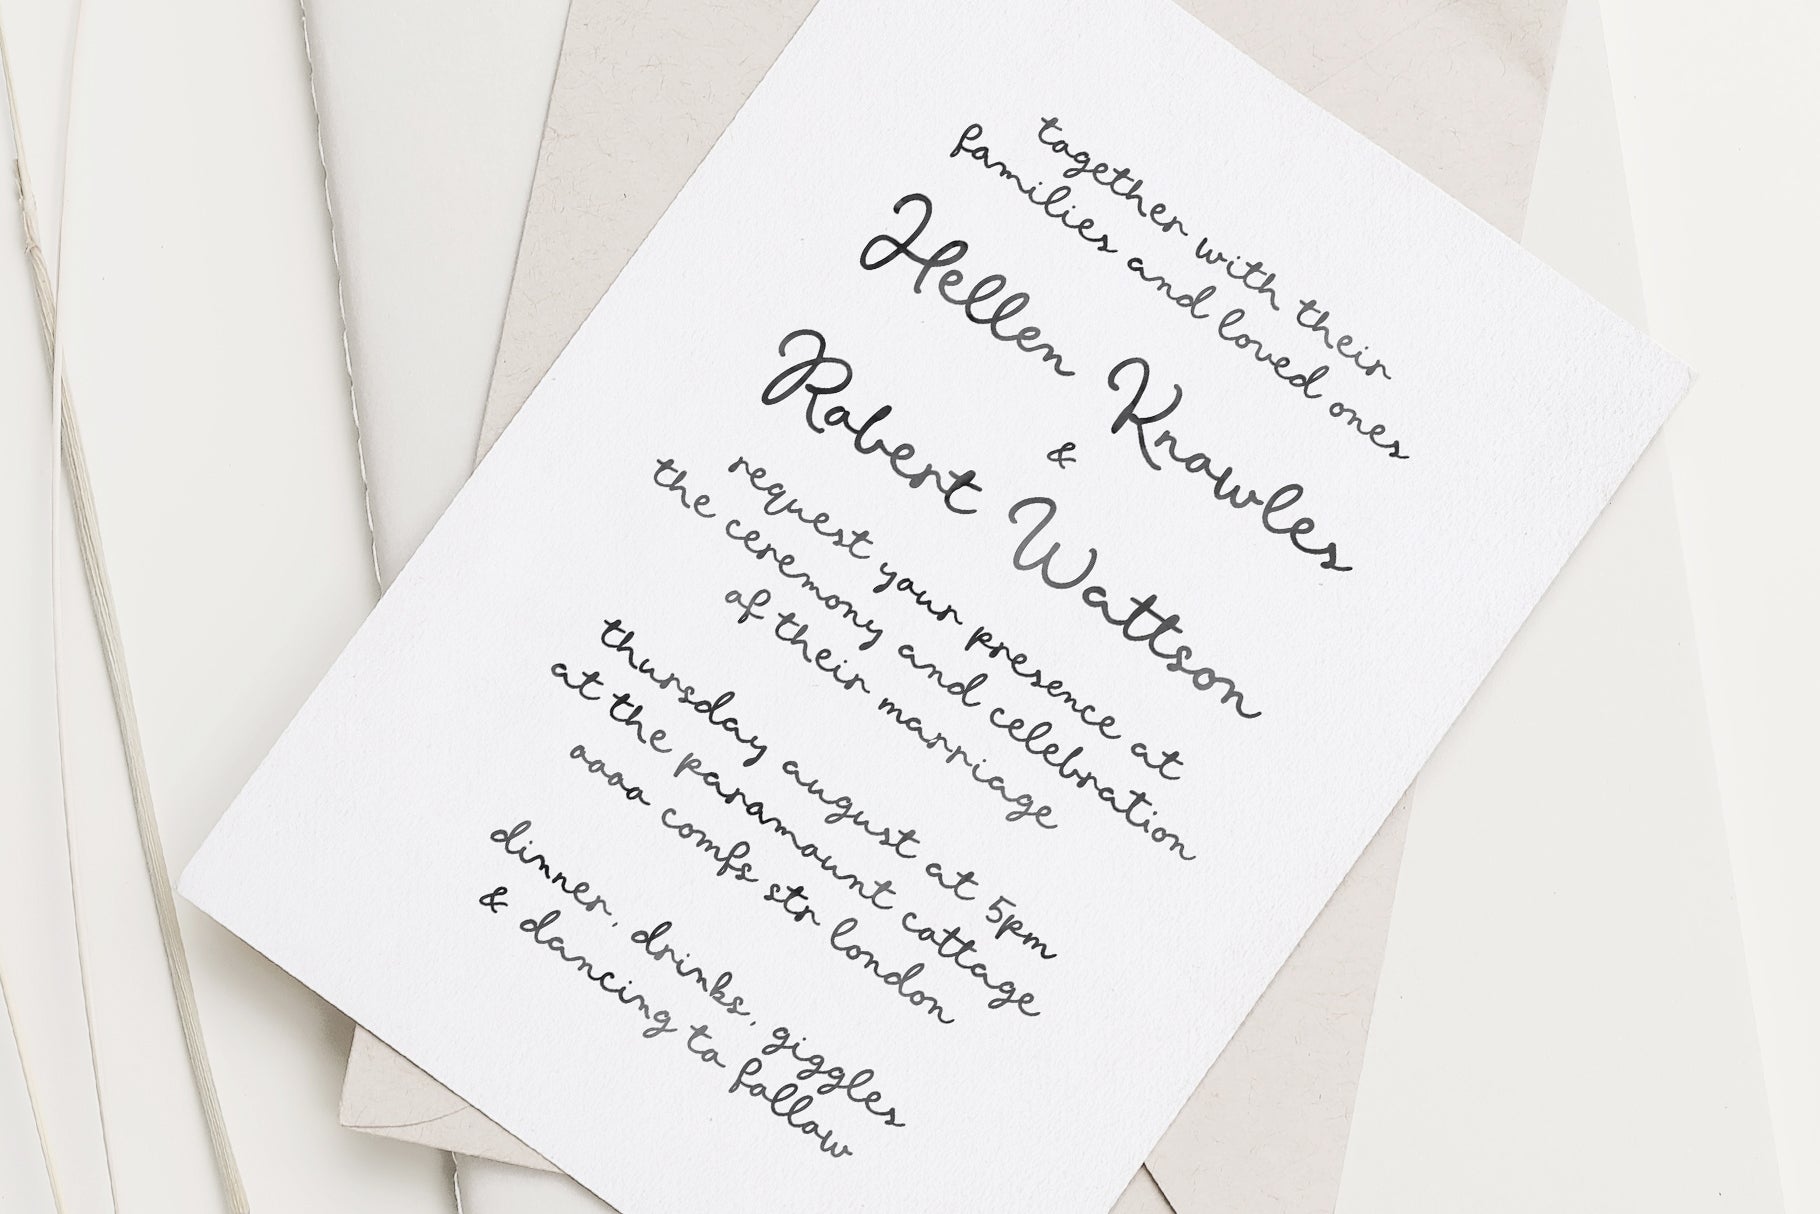 together with their
families and loved ones
Hellen Knowles
&
Robert Wattson
request your presence at
the ceremony and celebration
of their marriage
thursday august at 5pm
at the paramount cottage
oooo comfs str london
dinner, drinks, giggles
& dancing to follow